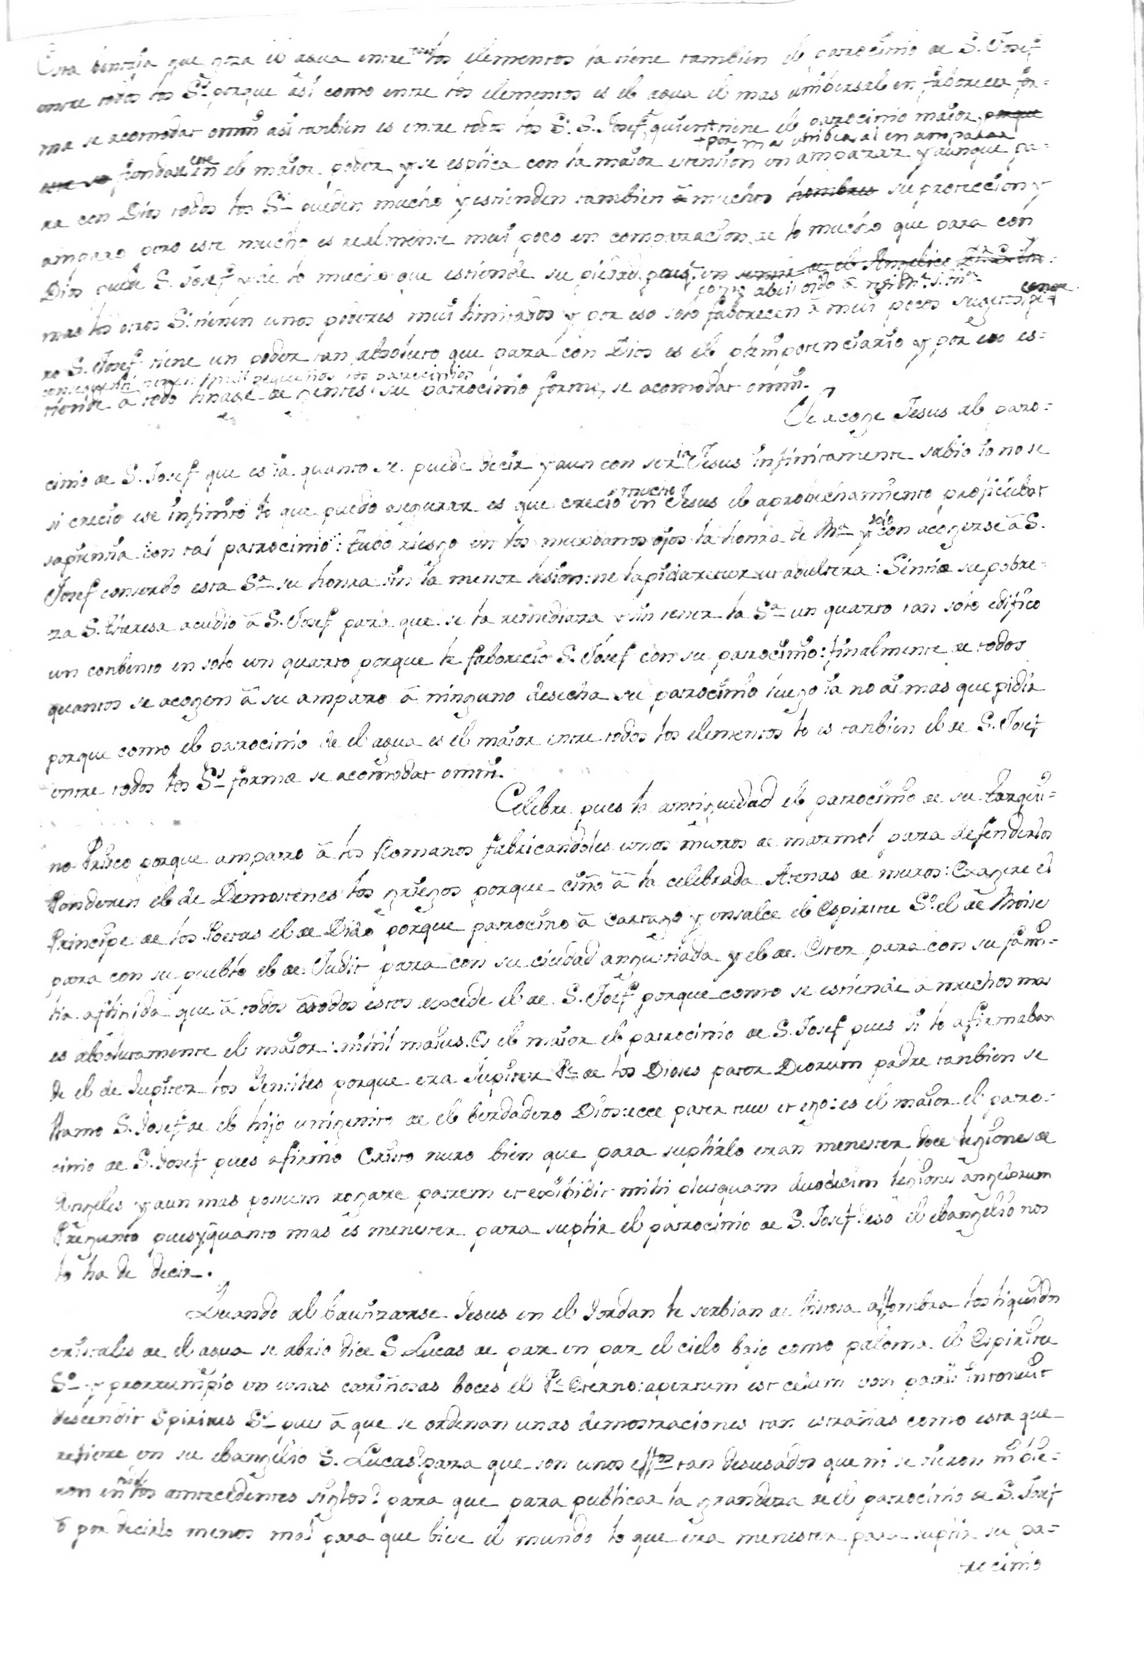 Esta bentaja que goza el agua entre todos los elementos la tiene tambien el patrocinio de S. Josef
entre todos los Stos. porque asi como entre los elementos es el agua el mas unibersal en faborecer for-
ma se acomodat omni asi tanbien es entre todos los Stos. S. Josef quien tiene el patrocinio maior porque
por mas unibersal en amparar
fundase en el maior poder y se esplica con la maior estension en amparar y aunque pa-
ra con Dios todos los Stos. pueden mucho y estienden tambien à muchos hombres su proteccion y
amparo pero este mucho es realmente mui poco en comparacion de lo mucho que para con
Dios puede S. Josef y de lo mucho que estiende su piedad pues en sentir de el Angelico
mas los otros Stos. tienen unos poderes mui limitados y por eso solo faborecen à mui pocos sugetos pe-
ro S. Josef tiene un poder tan absoluto que para con Dios es el plenipotenciario y por eso es-
tiende à todo linage de gentes su patrocinio forma se acomodat omni.
Se acoge Jesus al patro-
cinio de S. Josef que es la quanto se puede decir y aun con ser Jesus infinitamente sabio lo no se
si crecio ese infinito lo que puedo asegurar es que crecio mucho en Jesus el aprovechamiento proficiebat
sapientia con tal patrocinio: tubo riesgo en los mundanos ojos la honra de Ma. y solo con acogerse à S.
Josef conserbo esta Sa. su honra sin la menor lesion: ne lapidaretur ut adultera: Sentia su pobre-
za S. Theresa acudio à S. Josef para que se la remediara y sin tener la Sa. un quarto tan solo edifico
un conbento en solo un quarto porque le faborecio S. Josef con su patrocinio: finalmente de todos
quantos se acogen à su amparo à ninguno desecha su patrocinio luego ia no ai mas que pedir
porque como el patrocinio de el agua es el maior entre todos los elementos lo es tanbien el de S. Josef
entre todos los Stos. forma se acomodat omni.
Celebre pues la antiguedad el patrocinio de su Tarqui-
no Prisco porque amparo à los Romanos fabricandoles unos muros de marmol para defenderlos
Ponderen el de Demostenes los griegos porque ciño à la celebrada Atenas de muros: Exagere el
Principe de los Poetas el de Dido porque patrocino à Cartago y ensalce el Espiritu So. el de Moise
para con su pueblo el de Judit para con su ciudad angustiada y el de Ester para con su fami-
lia afligida que à todos todos estos excede el de S. Josef porque como se estiende a muchos mas
es absolutamente el maior: nihil maius. Es el maior el patrocinio de S. Josef pues si lo afirmaban
de el de Jupiter los Gentiles porque era Jupiter Pe. de los Dioses pater Deorum padre tanbien se
llamo S. Josef de el hijo unigenito de el berdadero Dios: ecce pater tuus et ego: es el maior el patro-
cinio de S. Josef pues afirmo Cristo nuestro bien que para suplirlo eran menester doce legiones de
Angeles y aun mas possum rogare patrem et exibibit mihi plusquam duodecim legiones angelorum
Pregunto pues y quanto mas es menester para suplir el patrocinio de S. Josef? eso el ebangelio nos
lo ha de decir.
Quando al bautizarse Jesus en el Jordan le serbian de hermosa alfombra los liquidos
cristales de el agua se abrio dice S. Lucas de par en par el cielo bajo como paloma el Espiritu
So. y prorrumpio en unas cariñosas boces el Pe. Eterno: apertum est celum vox patris intonuit
descendit Spiritus Ss. pues à que se ordenan unas demostraciones tan estrañas como esta que
refiere en su ebangelio S. Lucas? para que son unos tan desusados que ni se vieron ni oie-
ron en los antecedentes siglos? para que para publicar la grandeza de el patrocinio de S. Josef
o por decirlo menos mal para que biese el mundo lo que era menester para suplir su pa-
trocinio